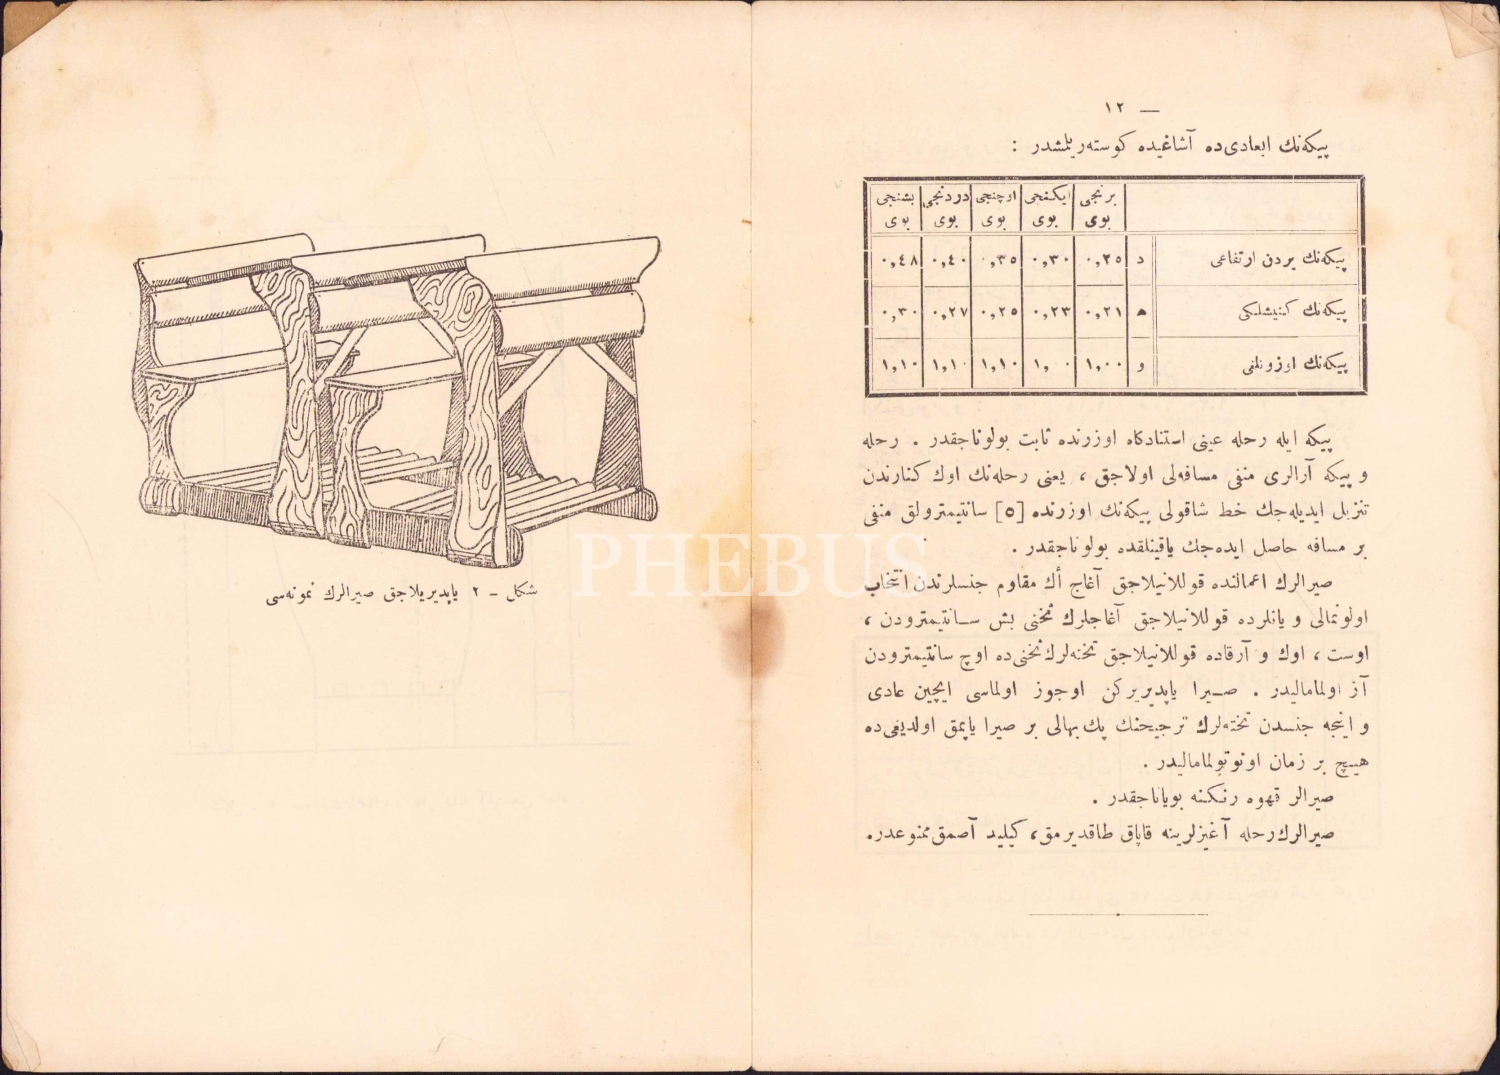 — ١٢
پیكه‌نك ابعادی‌ده آشاغیده كوسته‌ریلمشدر :
برنجی بوی ایكنجی بوی اوچنجی بوی دردنجی بوی بشنجی بوی
پیكه‌نك یردن ارتفاعی د ٠,٢٥ ٠,٣٠ ٠,٣٥ ٠,٤٠ ٠,٤٨
پیكه‌نك كنیشلكی ه ٠,٢١ ٠,٢٣ ٠,٢٥ ٠,٢٧ ٠,٣٠
پیكه‌نك اوزونلغی و ١,٠٠ ١,٠٠ ١,١٠ ١,١٠ ١,١٠
پیكه ایله رحله عینی استنادكاه اوزرنده ثابت بولوناجقدر . رحله
و پیكه آرالری منفی مسافه‌لی اولاجق ، یعنی رحله‌نك اوك كنارندن
تنزیل ایدیله‌جك خط شاقولی پیكه‌نك اوزرنده [٥] سانتیمترولق منفی
بر مسافه حاصل ایده‌جك یاقینلقده بولوناجقدر .
صیرالرك اعمالنده قوللانیلاجق آغاج أك مقاوم جنسلرندن انتخاب
اولونمالی و یانلرده قوللانیلاجق آغاجلرك ثخنی بش سـانتیمترودن ،
اوست ، اوك و آرقاده قوللانیلاجق تخته‌لرك ثخنی‌ده اوچ سانتیمترودن
آز اولمامالیدر . صـیرا یاپدیریركن اوجوز اولماسی ایچین عادی
و اینجه جنسدن تخته‌لرك ترجیحنك پك بهالی بر صیرا یاپمق اولدیغی‌ده
هیچ بر زمان اونوتولمامالیدر .
صیرالر قهوه رنكنه بویاناجقدر .
صیرالرك رحله آغیزلرینه قاپاق طاقدیرمق ، كیلید آصمق ممنوعدر .
شكل - ٢ یاپدیریلاجق صیرالرك نمونه‌سی
PHEBUS